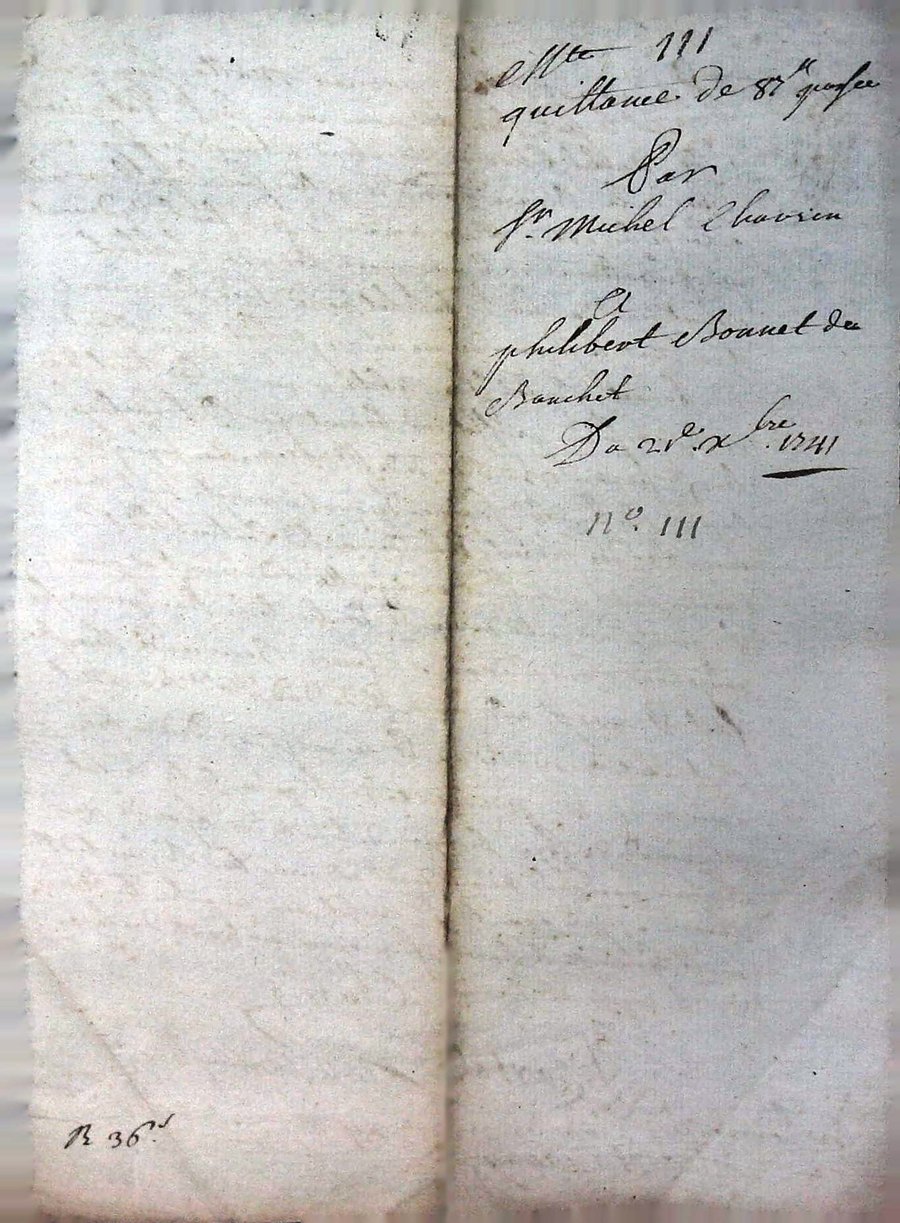 Cotte 111
quittance de 87ᵗᵗ passée
Par
Sr. Michel Chavrien
A
philibert Bonnet du
Bouchet
Du 21e. xbre. 1741
No. 111
R 36 s